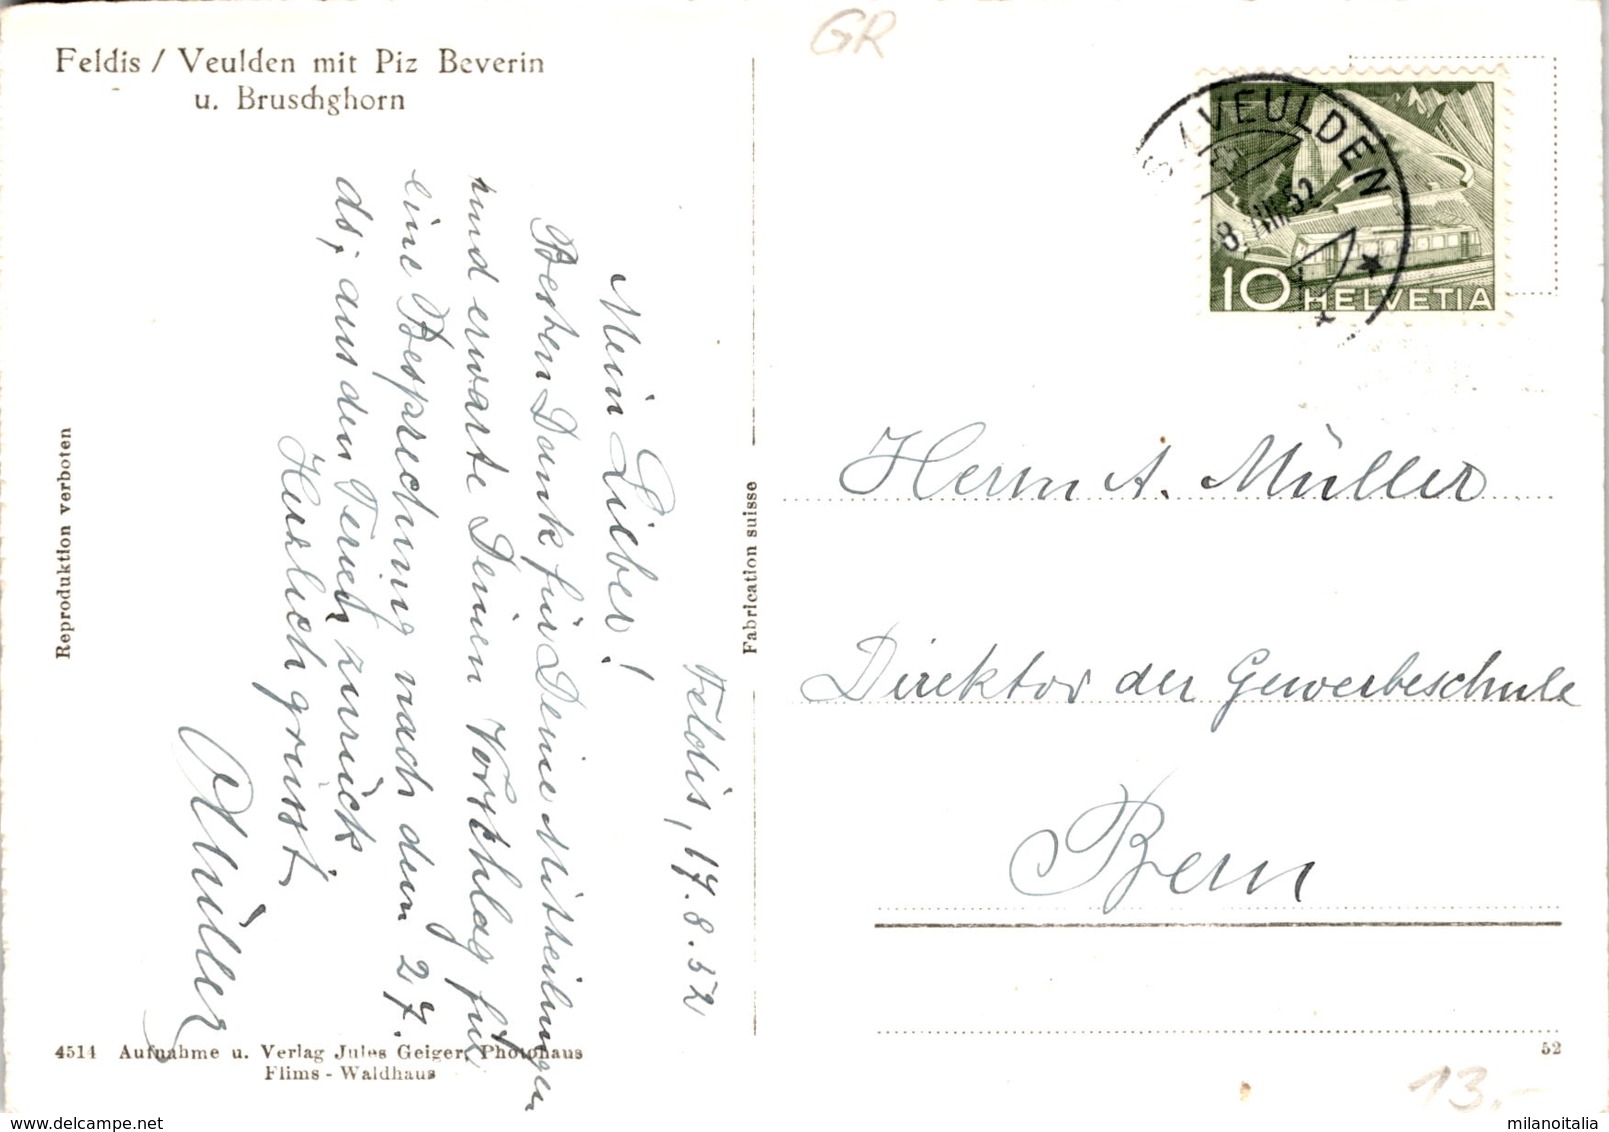 Feldis / Veulden mit Piz Beverin
u. Bruschghorn
GR
S / VEULDEN
8. VIII. 52
10 HELVETIA
Feldis, 17.8.52
Mein Lieber!
Besten Dank für Deine Mitteilungen
und erwarte Deinen Vorschlag für
eine Besprechung nach dem 27.
ds, aus den Ferien zurück
Herzlich grüsst
AMüller
Reproduktion verboten
Fabrication suisse
Herrn A. Müller
Direktor der Gewerbeschule
Bern
4514 Aufnahme u. Verlag Jules Geiger, Photohaus
Flims - Waldhaus
52
13.-
milanoitalia
www.delcampe.net